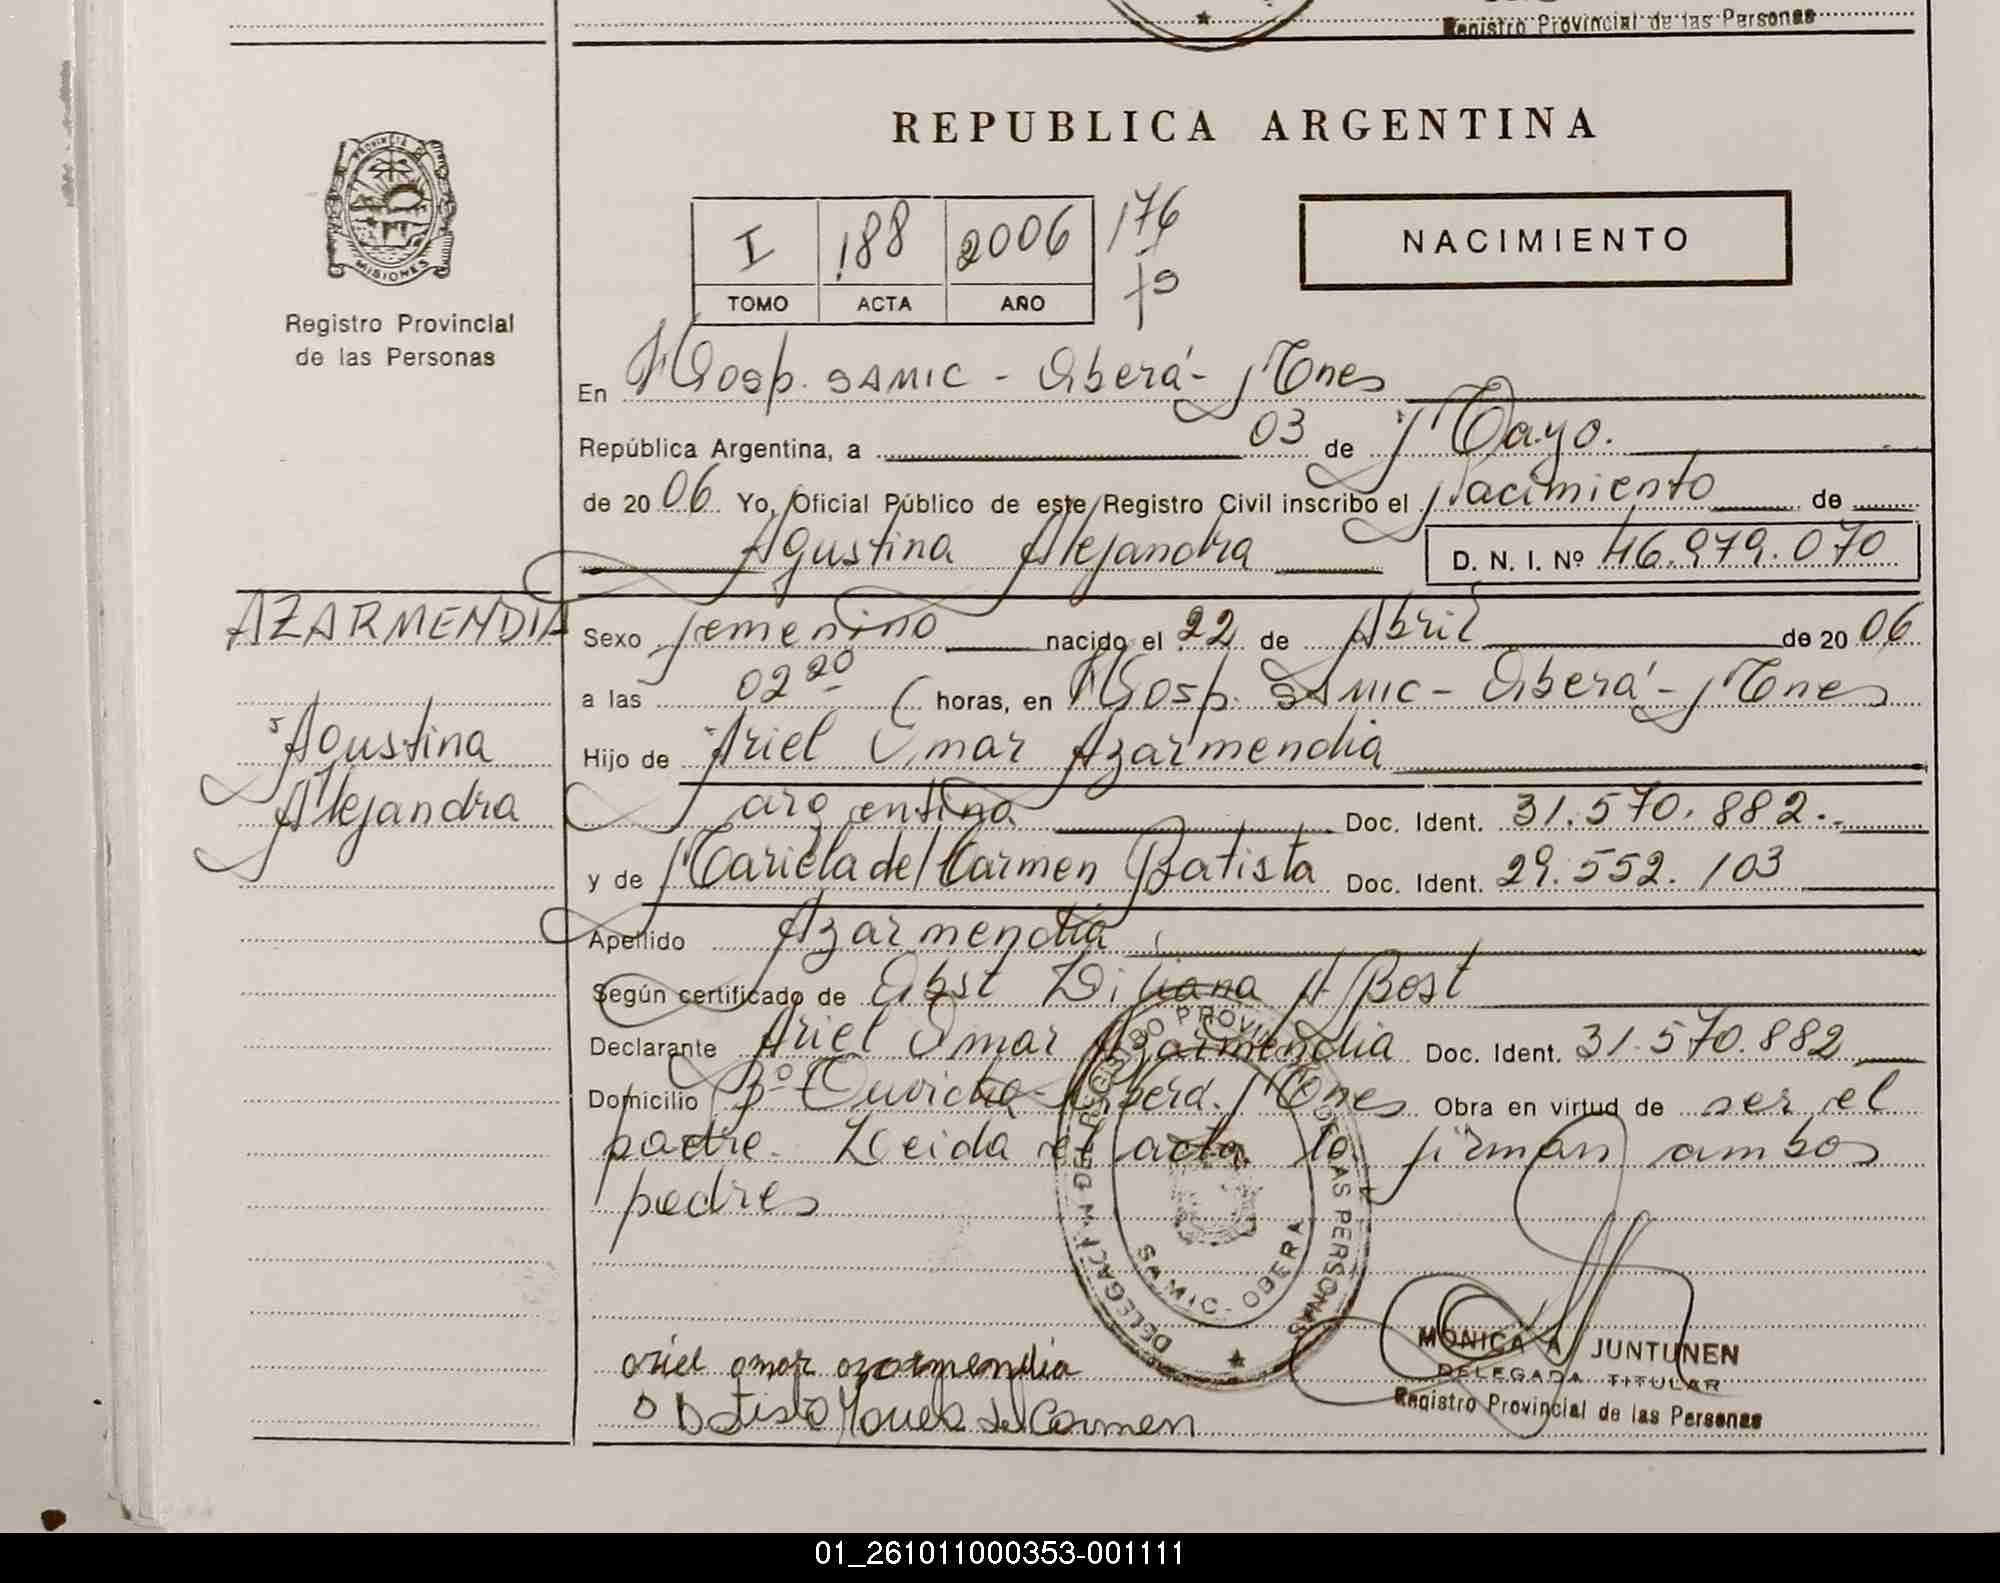 Registro Provincial de las Personas
REPUBLICA ARGENTINA
PROVINCIA DE
MISIONES
Registro Provincial
de las Personas
I 188 2006 176
TOMO ACTA AÑO
NACIMIENTO
En Hosp. SAMIC - Oberá - Mnes
República Argentina, a 03 de Mayo.
de 20 06 Yo, Oficial Público de este Registro Civil inscribo el Nacimiento de
Agustina Alejandra D. N. I. Nº 46.979.070
AZARMENDIA
Agustina
Alejandra
Sexo femenino nacido el 22 de Abril de 20 06
a las 02 20 horas, en Hosp. SAMIC - Oberá - Mnes
Hijo de Ariel Omar Azarmendia
argentina Doc. Ident. 31.570.882.-
y de Mariela del Carmen Batista Doc. Ident. 29.552.103
Apellido Azarmendia
Según certificado de Obst Liliana A Bost
Declarante Ariel Omar Azarmendia Doc. Ident. 31.570.882
Domicilio Bº Oberá. Mnes Obra en virtud de ser el
padre. Leida el acta la firman ambos
padres
DELEGACI REGISTRO PROVINCIAL DE LAS PERSONAS
SAMIC - OBERA
ariel omar azarmendia
Batista Mariela del Carmen
MONICA A. JUNTUNEN
DELEGADA TITULAR
Registro Provincial de las Personas
01_261011000353-001111